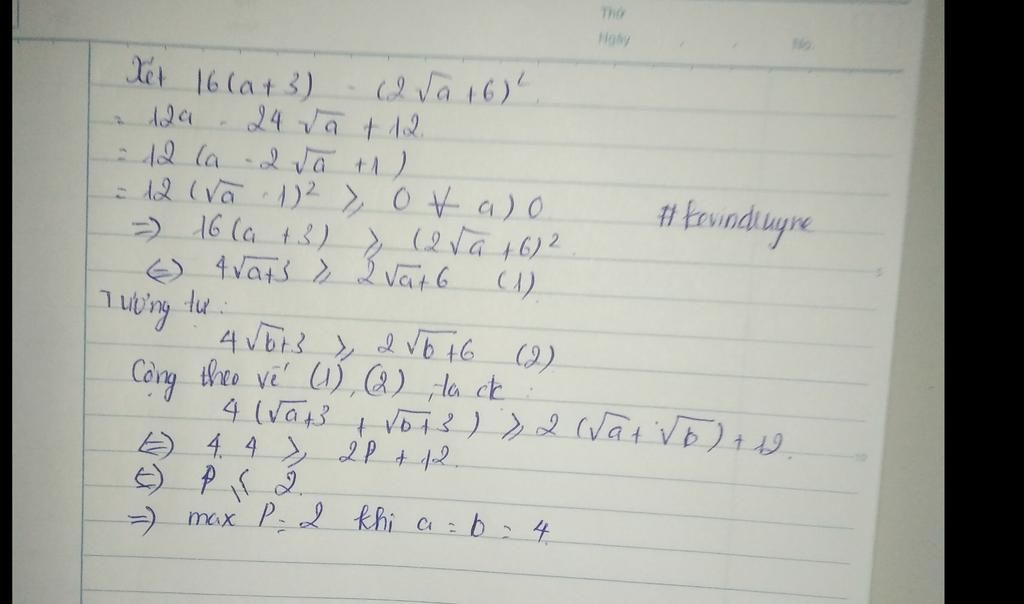 Thứ
Ngày . . No.
Xét 16(a+3) - (2√a +6)²
= 12a - 24√a + 12
= 12 (a - 2√a +1)
= 12 (√a - 1)² ≥ 0 ∀ a ≥ 0
#kevindluyne
⇒ 16(a +3) ≥ (2√a +6)².
⇔ 4√a+3 ≥ 2√a+6 (1)
Tương tự :
4√b+3 ≥ 2√b+6 (2)
Cộng theo vế (1), (2), ta đc :
4 (√a+3 + √b+3) ≥ 2 (√a + √b) + 12.
⇔ 4. 4 ≥ 2P + 12.
⇔ P ≤ 2.
⇒ max P = 2 khi a = b = 4